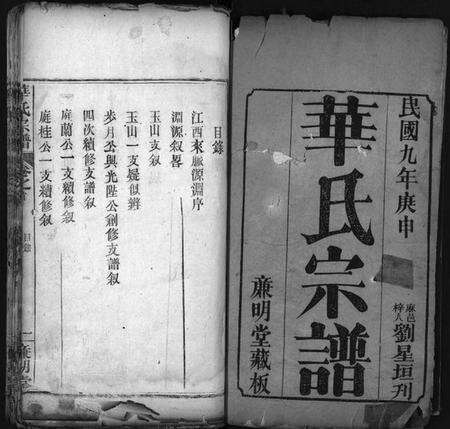 民國九年庚申
華氏宗譜
麻邑
梓人
劉星垣刋
廉明堂藏板
目錄
江西來脈源淵序
淵源叙畧
玉山支叙
玉山一支疑似辨
步月公與光陞公創修支譜叙
四次續修支譜叙
蘭公一支續修叙
庭桂公一支續修叙
華氏宗譜
目錄
二 廉明堂